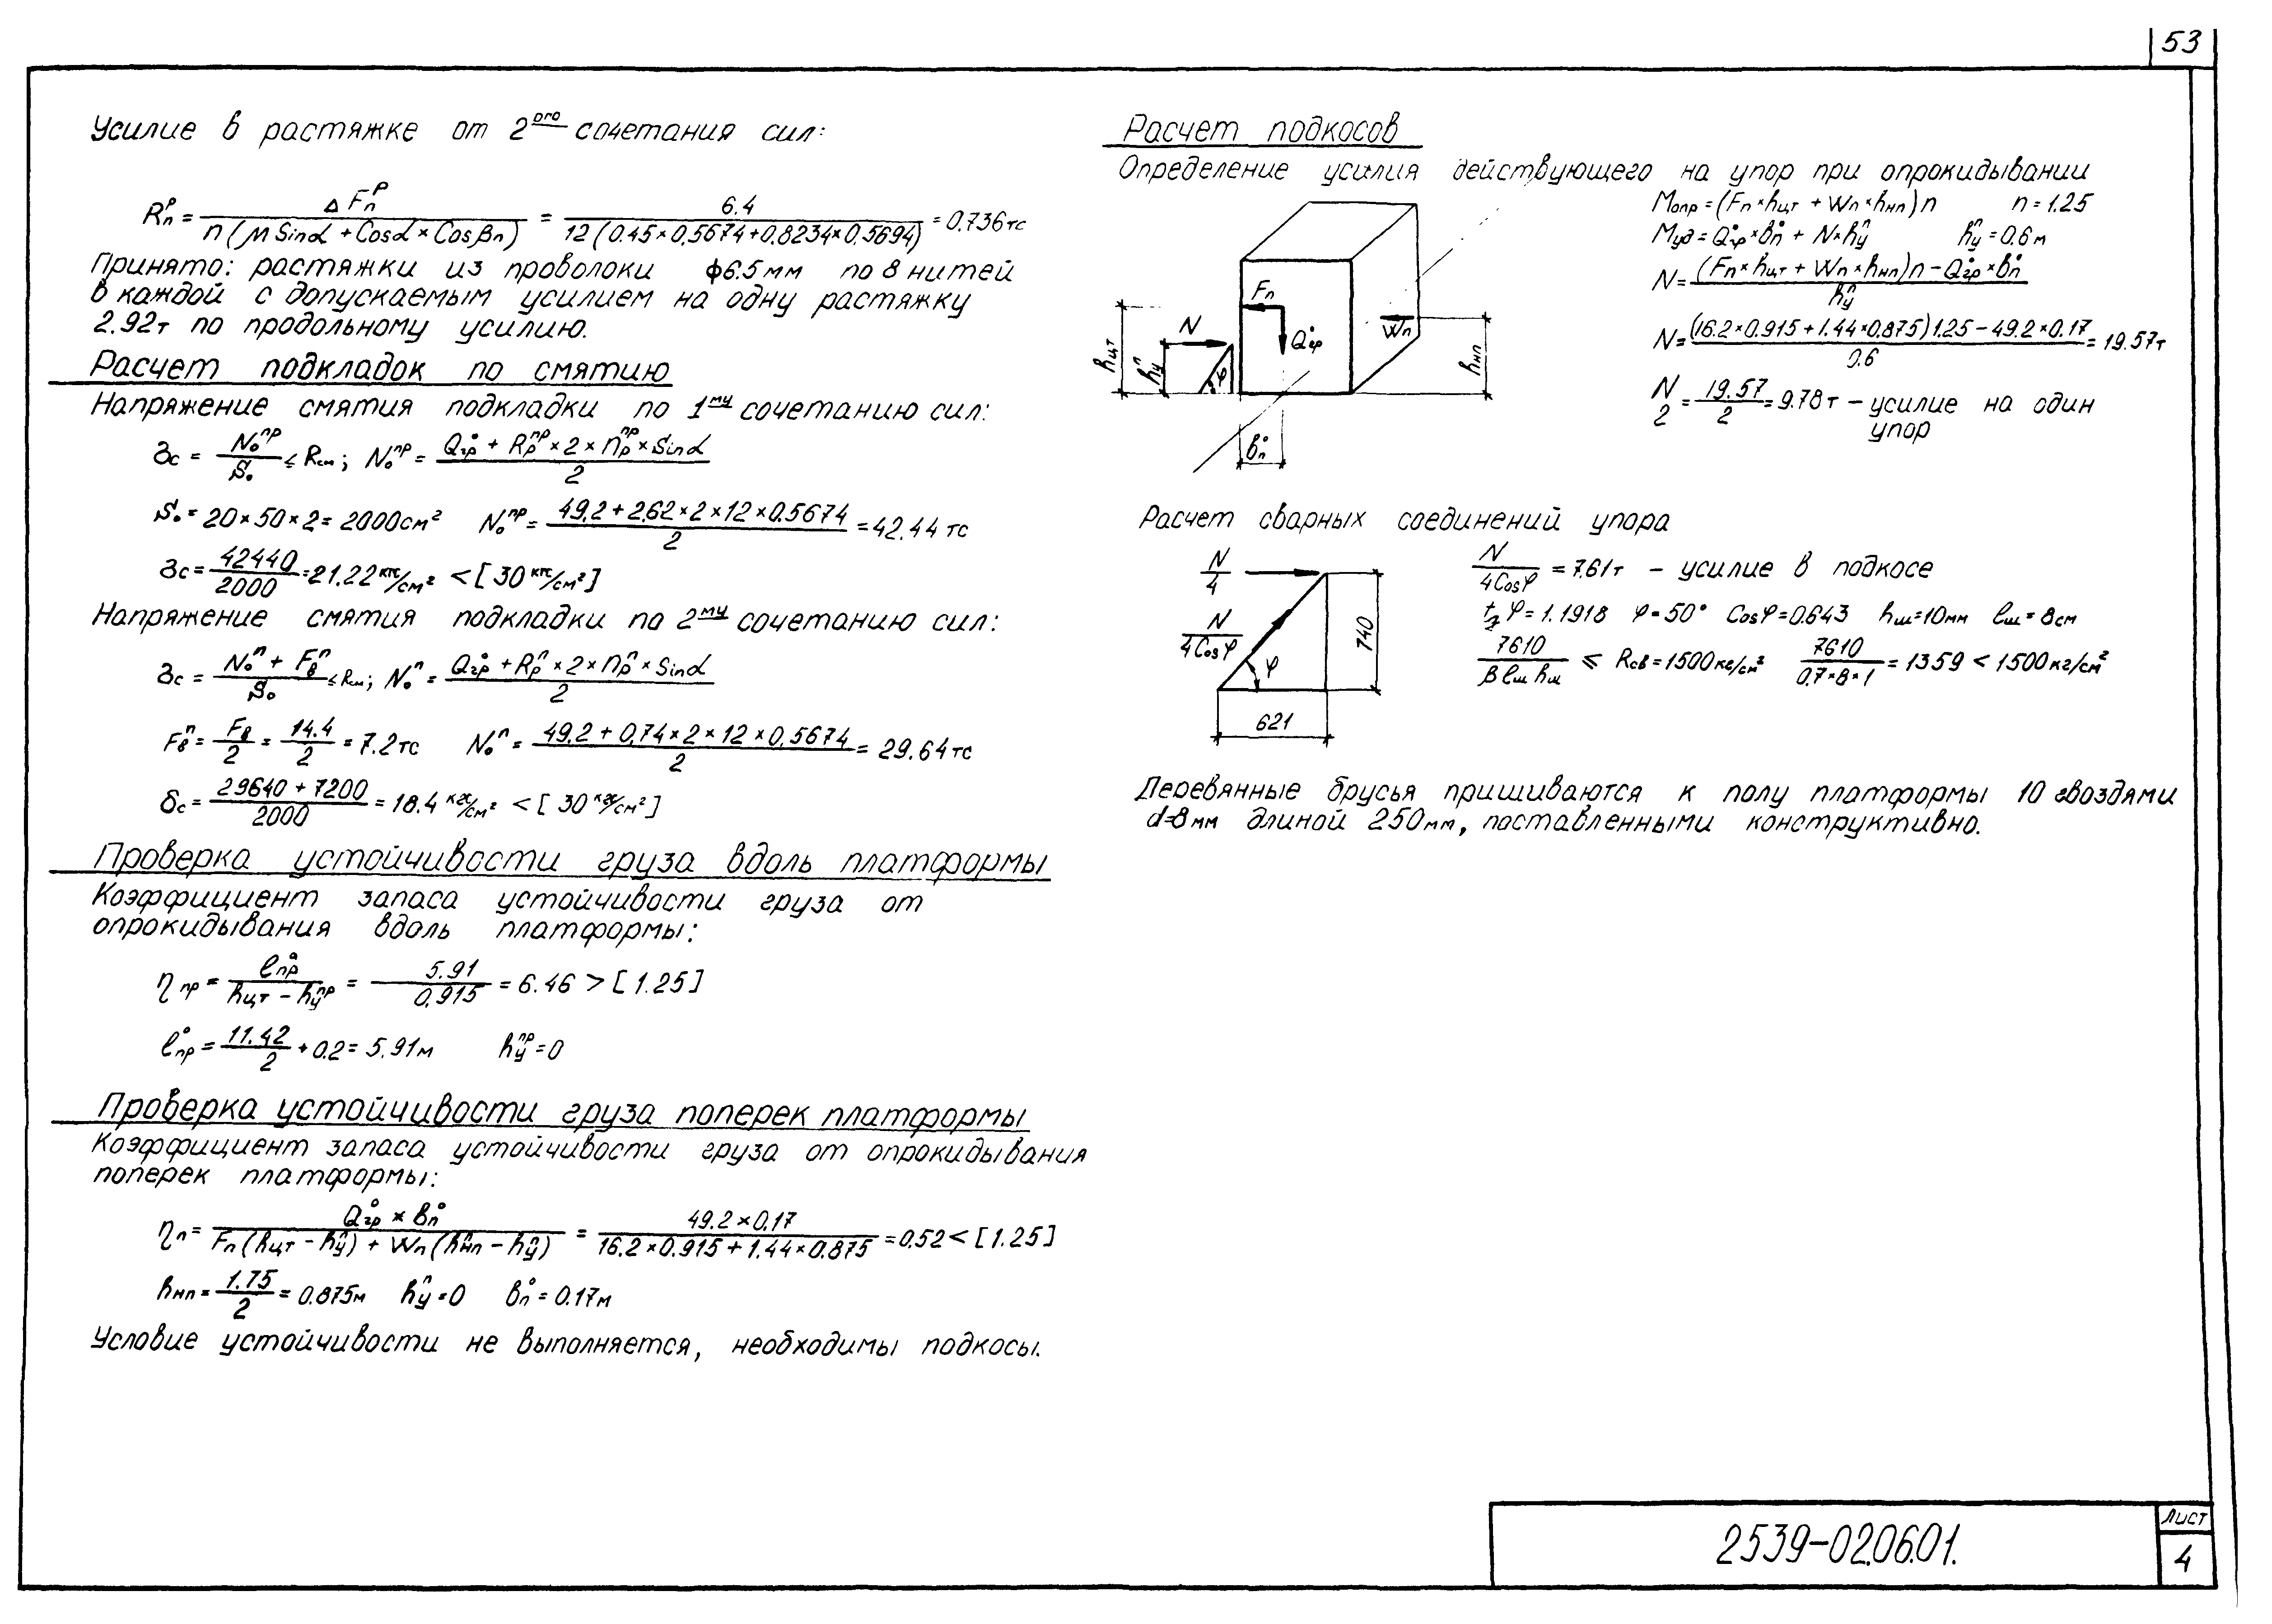 53
Усилие в растяжке от 2ого сочетания сил:
Rпр = ΔFпр / n(μ Sinα + Cosα × Cosβп) = 6.4 / 12(0.45×0.5674+0.8234×0.5694) = 0.736тс
Принято: растяжки из проволоки ф6.5мм по 8 нитей
в каждой с допускаемым усилием на одну растяжку
2.92т по продольному усилию.
Расчет подкладок по смятию
Напряжение смятия подкладки по 1му сочетанию сил:
δс = Nопр / Sо ≤ Rсм; Nопр = (Qгро + Rрпр × 2 × nрпр × Sinα) / 2
Sо = 20×50×2 = 2000см² Nопр = (49,2 + 2,62×2×12×0.5674) / 2 = 42.44 тс
δс = 42440 / 2000 = 21.22 кгс/см² < [30 кгс/см²]
Напряжение смятия подкладки по 2му сочетанию сил:
δс = (Nоп + Fвп) / Sо ≤ Rсм; Nоп = (Qгро + Rрп × 2 × nрп × Sinα) / 2
Fвп = Fв / 2 = 14.4 / 2 = 7.2тс Nоп = (49,2 + 0,74×2×12×0,5674) / 2 = 29.64 тс
δс = (29640 + 7200) / 2000 = 18.4 кгс/см² < [30 кгс/см²]
Проверка устойчивости груза вдоль платформы
Коэффициент запаса устойчивости груза от
опрокидывания вдоль платформы:
ηпр = lпро / (hцт − hупр) = 5.91 / 0,915 = 6.46 > [1.25]
lпро = 11.42 / 2 + 0.2 = 5.91м hупр = 0
Проверка устойчивости груза поперек платформы
Коэффициент запаса устойчивости груза от опрокидывания
поперек платформы:
ηп = Qгро × bпо / (Fп(hцт − hуп) + Wп(hнпп − hуп)) = 49.2×0,17 / (16.2×0.915 + 1.44×0.875) = 0.52 < [1.25]
hнп = 1.75 / 2 = 0.875м hуп = 0 bпо = 0.17м
Условие устойчивости не выполняется, необходимы подкосы.
Расчет подкосов
Определение усилия действующего на упор при опрокидывании
Mопр = (Fп×hцт + Wп×hнп)n n = 1.25
Mуд = Qгро×bпо + N×hуп hуп = 0.6м
N = ((Fп×hцт + Wп×hнп)n − Qгро×bпо) / hуп
N = ((16.2×0.915 + 1.44×0.875)1.25 − 49.2×0.17) / 0.6 = 19.57т
N / 2 = 19.57 / 2 = 9.78т – усилие на один
упор
Fп
N
Qгро
Wп
hцт
hуп
φ
hнп
bпо
Расчет сварных соединений упора
N / 4
N / 4Cosφ
φ
740
621
N / 4Cosφ = 7.61т – усилие в подкосе
tgφ = 1.1918 φ = 50° Cosφ = 0.643 hш = 10мм lш = 8см
7610 / β lш hш ≤ Rсв = 1500кг/см² 7610 / 0,7×8×1 = 1359 < 1500кг/см²
Деревянные брусья пришиваются к полу платформы 10 гвоздями
d=8мм длиной 250мм, поставленными конструктивно.
2539-02.06.01.
Лист
4